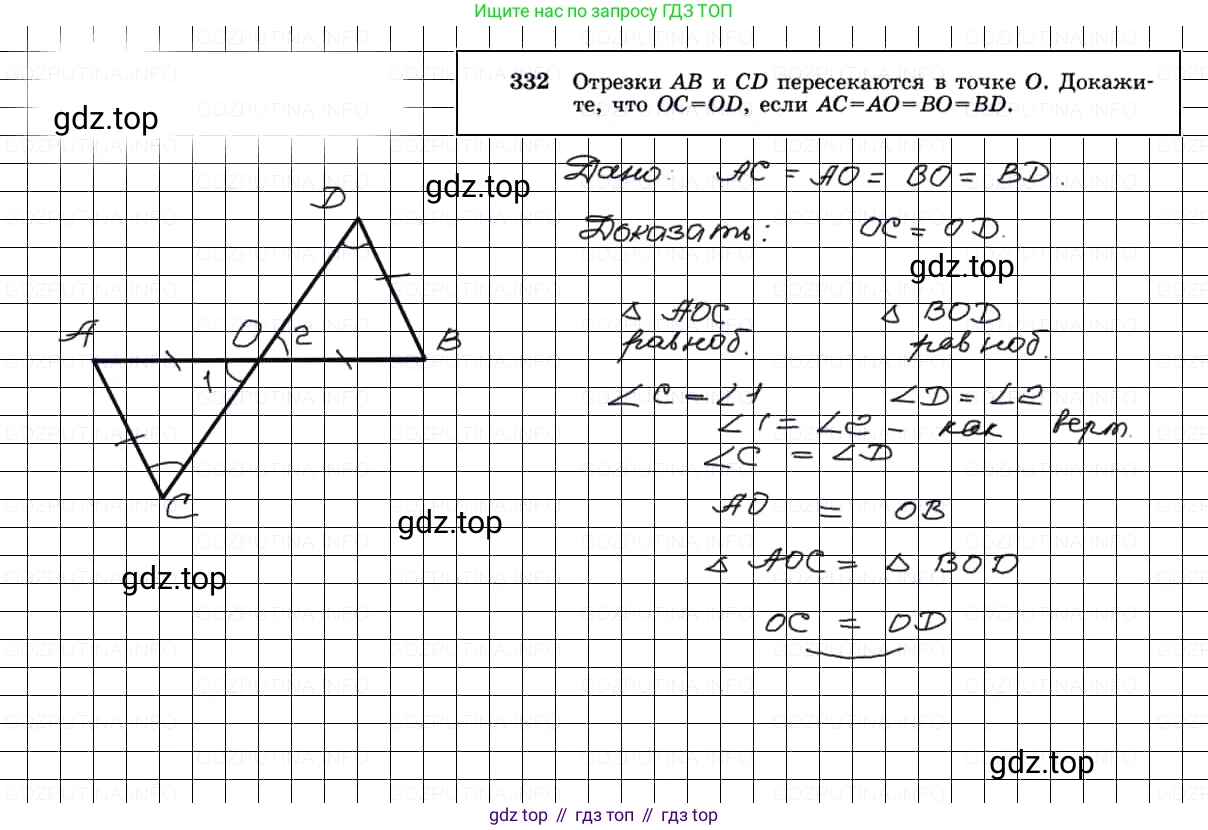 Ищите нас по запросу ГДЗ ТОП
332 Отрезки AB и CD пересекаются в точке O. Докажи-
те, что OC=OD, если AC=AO=BO=BD.
gdz.top
Дано: AC = AO = BO = BD.
gdz.top
D
Доказать: OC = OD.
gdz.top
△ AOC △ BOD
равноб. равноб.
A O 2 B
1
∠C = ∠1 ∠D = ∠2
∠1 = ∠2 - как верт.
∠C = ∠D
C
AO = OB
gdz.top
△ AOC = △ BOD
gdz.top
OC = OD
gdz.top
gdz top // гдз топ // гдз top
GDZPUTINA.INFO